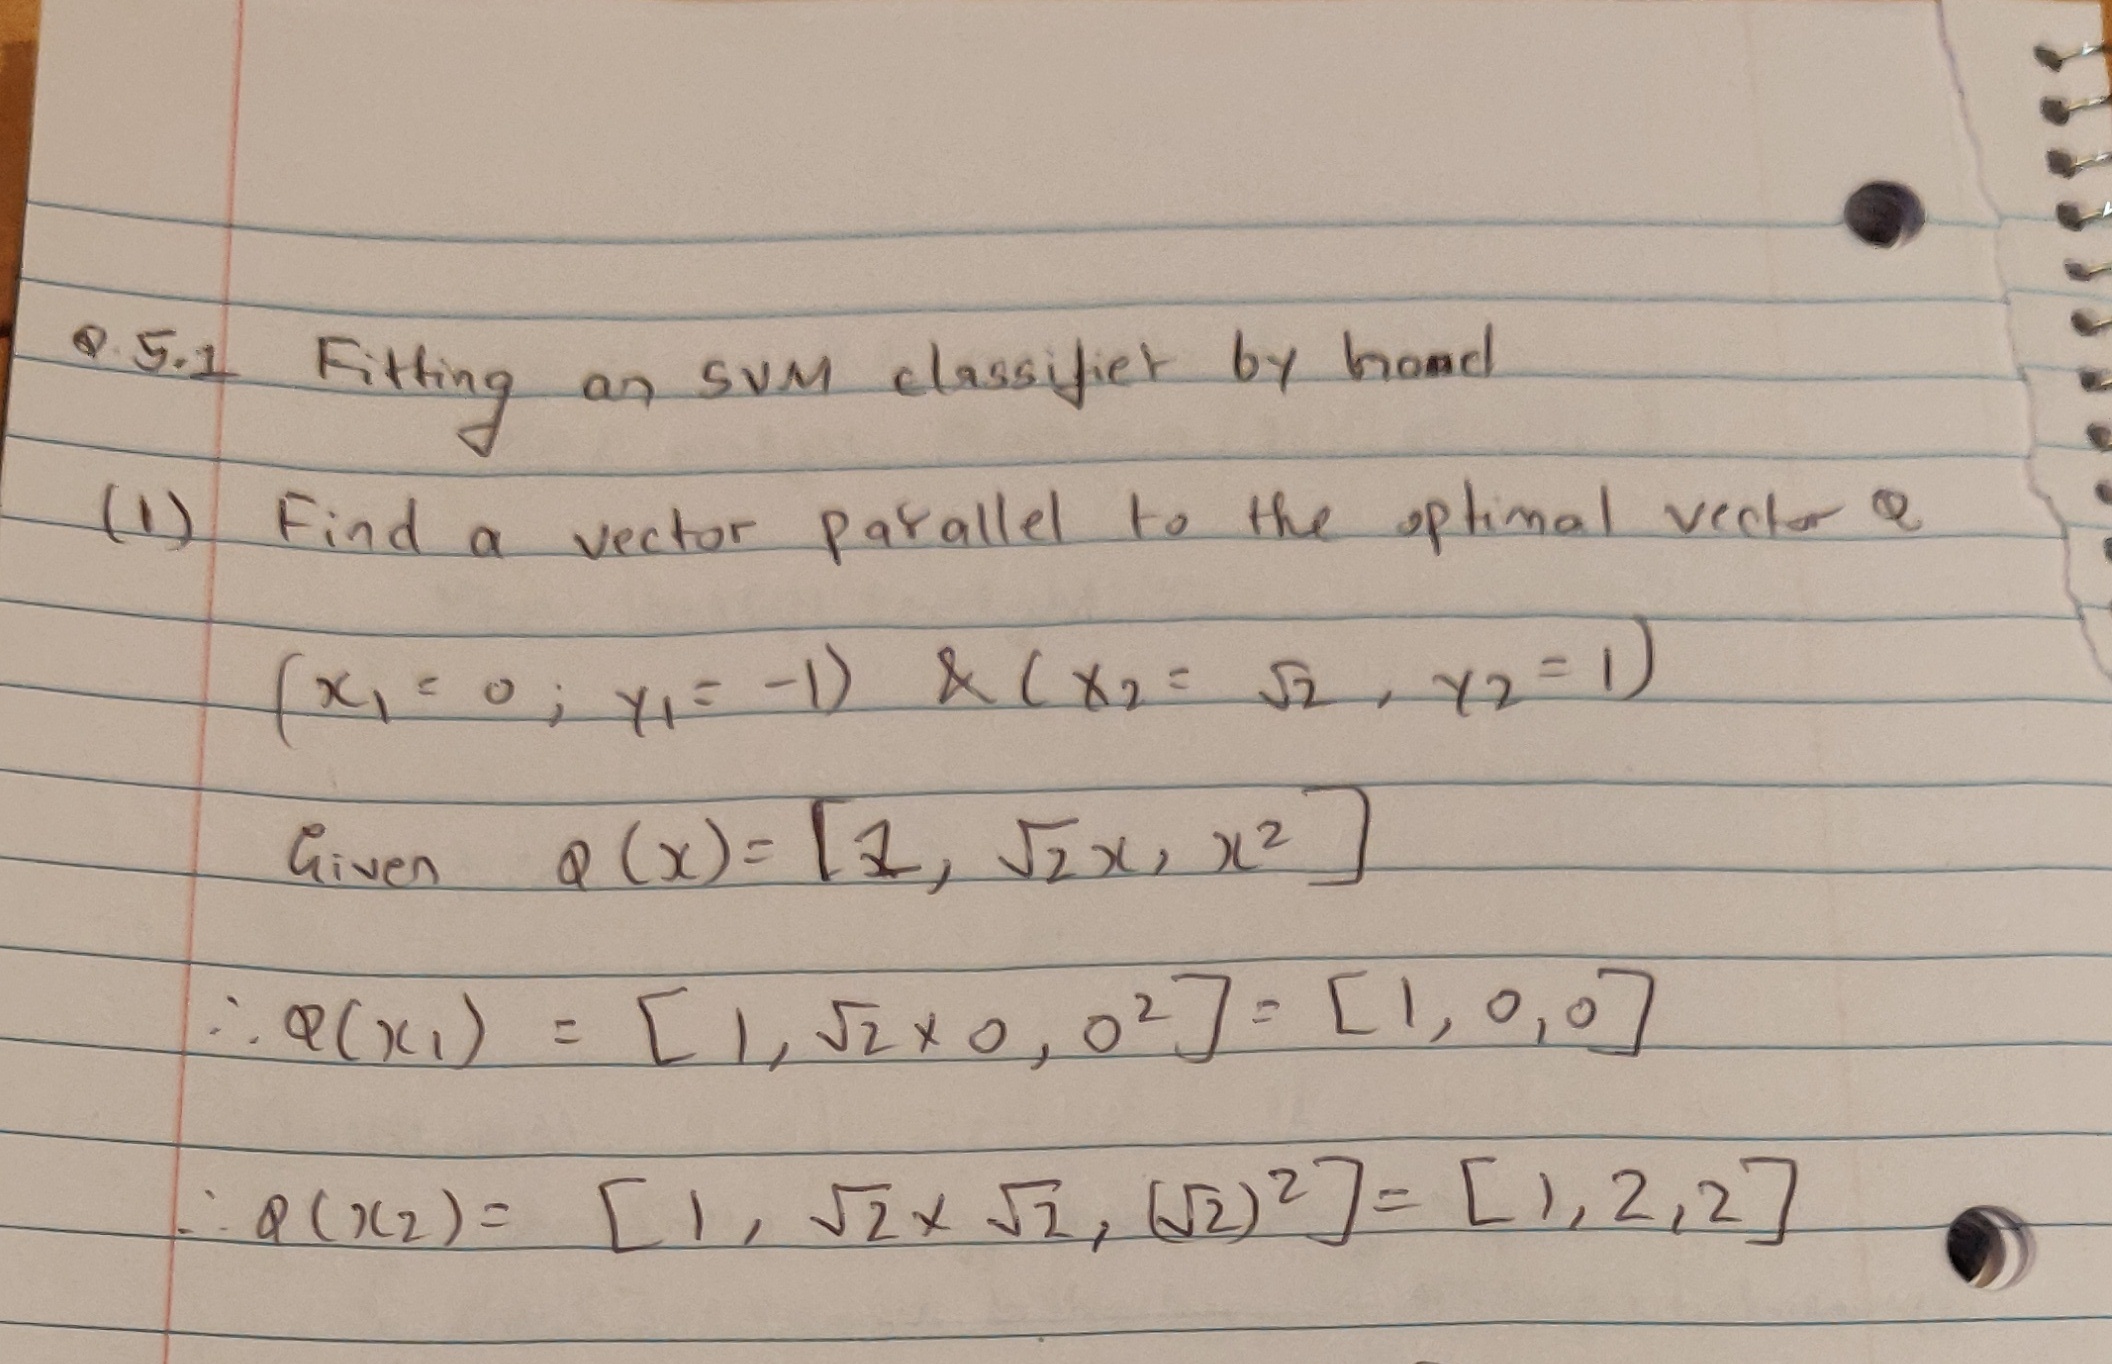 Q.5.1 Fitting an SVM classifier by hand
(1) Find a vector parallel to the optimal vector Q
(x₁ = 0; y₁ = -1) & (x₂ = √2, y₂ = 1)
Given Q(x) = [1, √2x, x²]
∴ Q(x₁) = [1, √2 × 0, 0²] = [1, 0, 0]
∴ Q(x₂) = [1, √2 × √2, (√2)²] = [1, 2, 2]